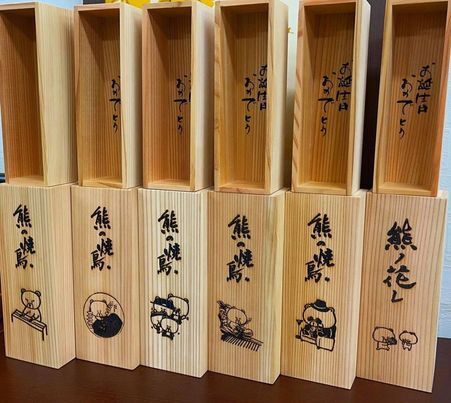 おめでとう
おめでとう
お誕生日
おめでとう
お誕生日
おめでとう
お誕生日
おめでとう
熊の焼鳥
熊の焼鳥
熊の焼鳥
熊の焼鳥
熊の焼鳥
熊ノ花し